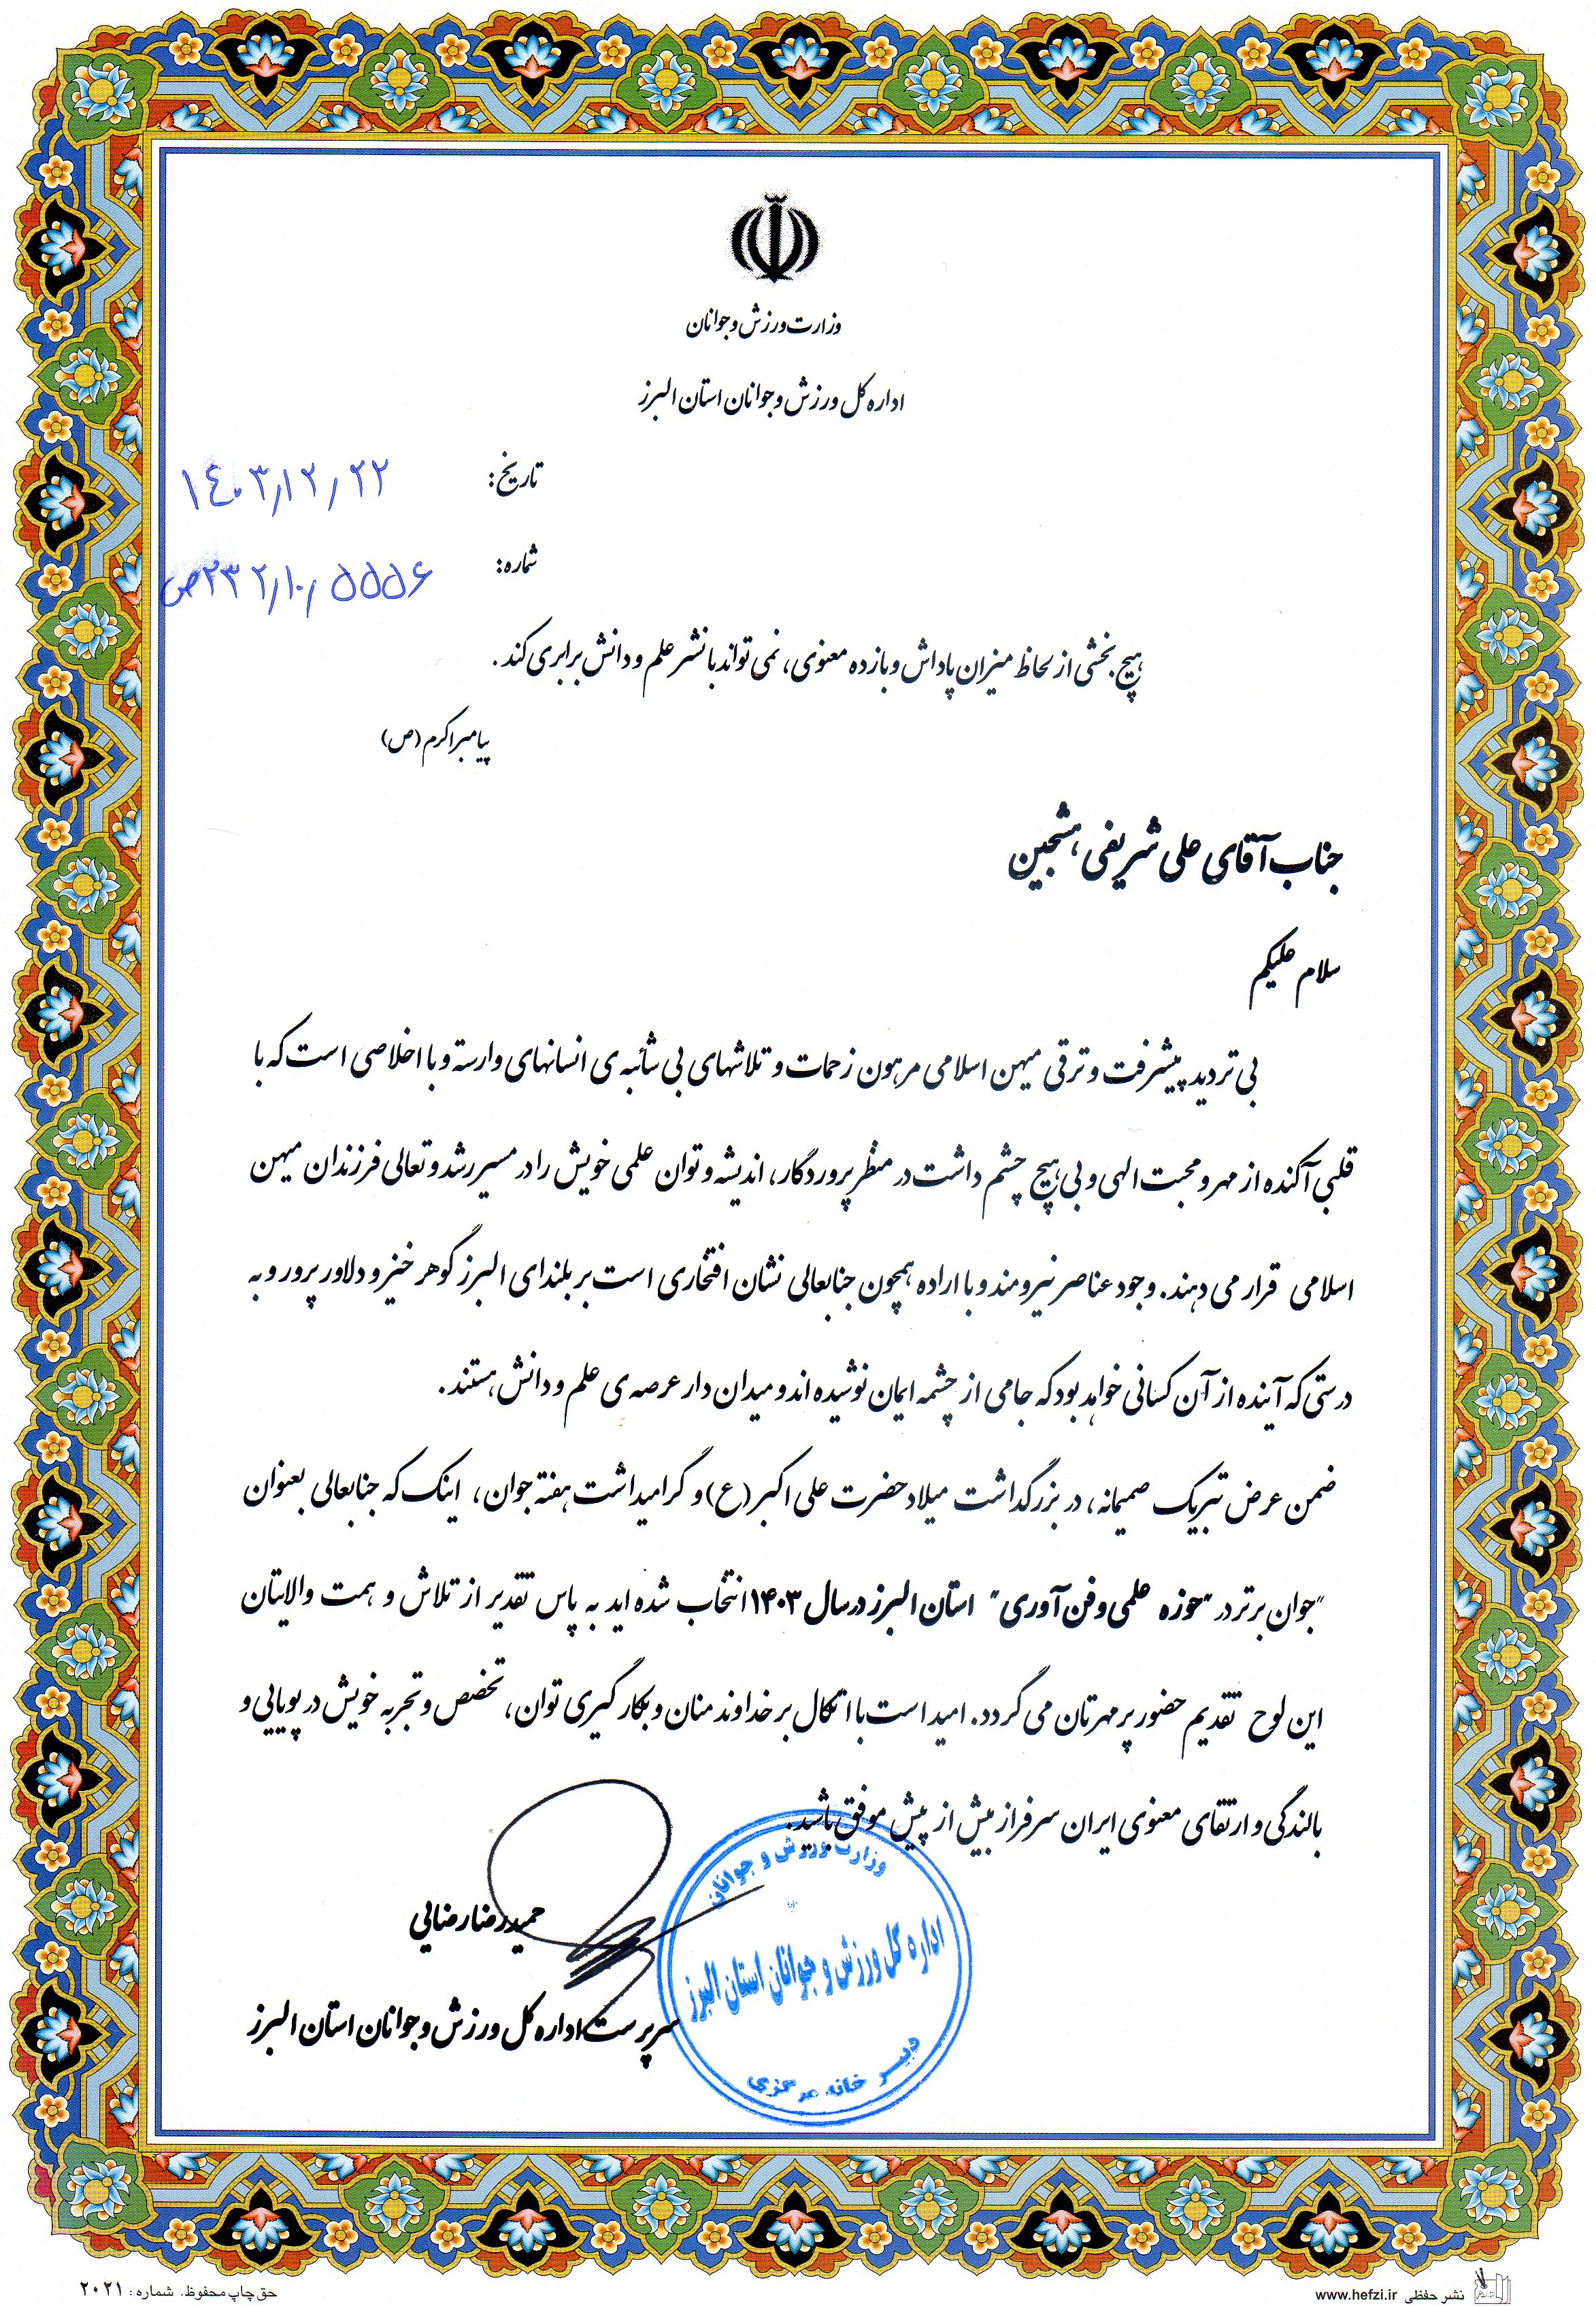 وزارت ورزش و جوانان
اداره کل ورزش و جوانان استان البرز
تاریخ: ۱۴۰۳/۱۲/۲۲
شماره: ۲۳۲/۱۰/۵۵۵۶ص
هیچ بخشی از لحاظ میزان پاداش و بازده معنوی، نمی تواند با نشر علم و دانش برابری کند.
پیامبر اکرم (ص)
جناب آقای علی شریفی هشجین
سلام علیکم
بی تردید پیشرفت و ترقی میهن اسلامی مرهون زحمات و تلاشهای بی شائبه ی انسانهای وارسته و با اخلاصی است که با
قلبی آکنده از مهر و محبت الهی و بی هیچ چشم داشت در منظر پروردگار، اندیشه و توان علمی خویش را در مسیر رشد و تعالی فرزندان میهن
اسلامی قرار می دهند. وجود عناصر نیرومند و با اراده همچون جنابعالی نشان افتخاری است بر بلندای البرز گوهر خیز و دلاور پرور و به
درستی که آینده از آن کسانی خواهد بود که جامی از چشمه ایمان نوشیده اند و میدان دار عرصه ی علم و دانش هستند.
ضمن عرض تبریک صمیمانه، در بزرگداشت میلاد حضرت علی اکبر (ع) و گرامیداشت هفته جوان، اینک که جنابعالی بعنوان
"جوان برتر در "حوزه علمی و فن آوری" استان البرز در سال ۱۴۰۳ انتخاب شده اید به پاس تقدیر از تلاش و همت والایتان
این لوح تقدیم حضور پر مهرتان می گردد. امید است با اتکال بر خداوند منان و بکار گیری توان، تخصص و تجربه خویش در پویایی و
بالندگی و ارتقای معنوی ایران سرفراز بیش از پیش موفق باشید.
حمیدرضا رضایی
سرپرست اداره کل ورزش و جوانان استان البرز
وزارت ورزش و جوانان
اداره کل ورزش و جوانان استان البرز
دبیرخانه مرکزی
نشر حفظی www.hefzi.ir
حق چاپ محفوظ. شماره: ۲۰۲۱